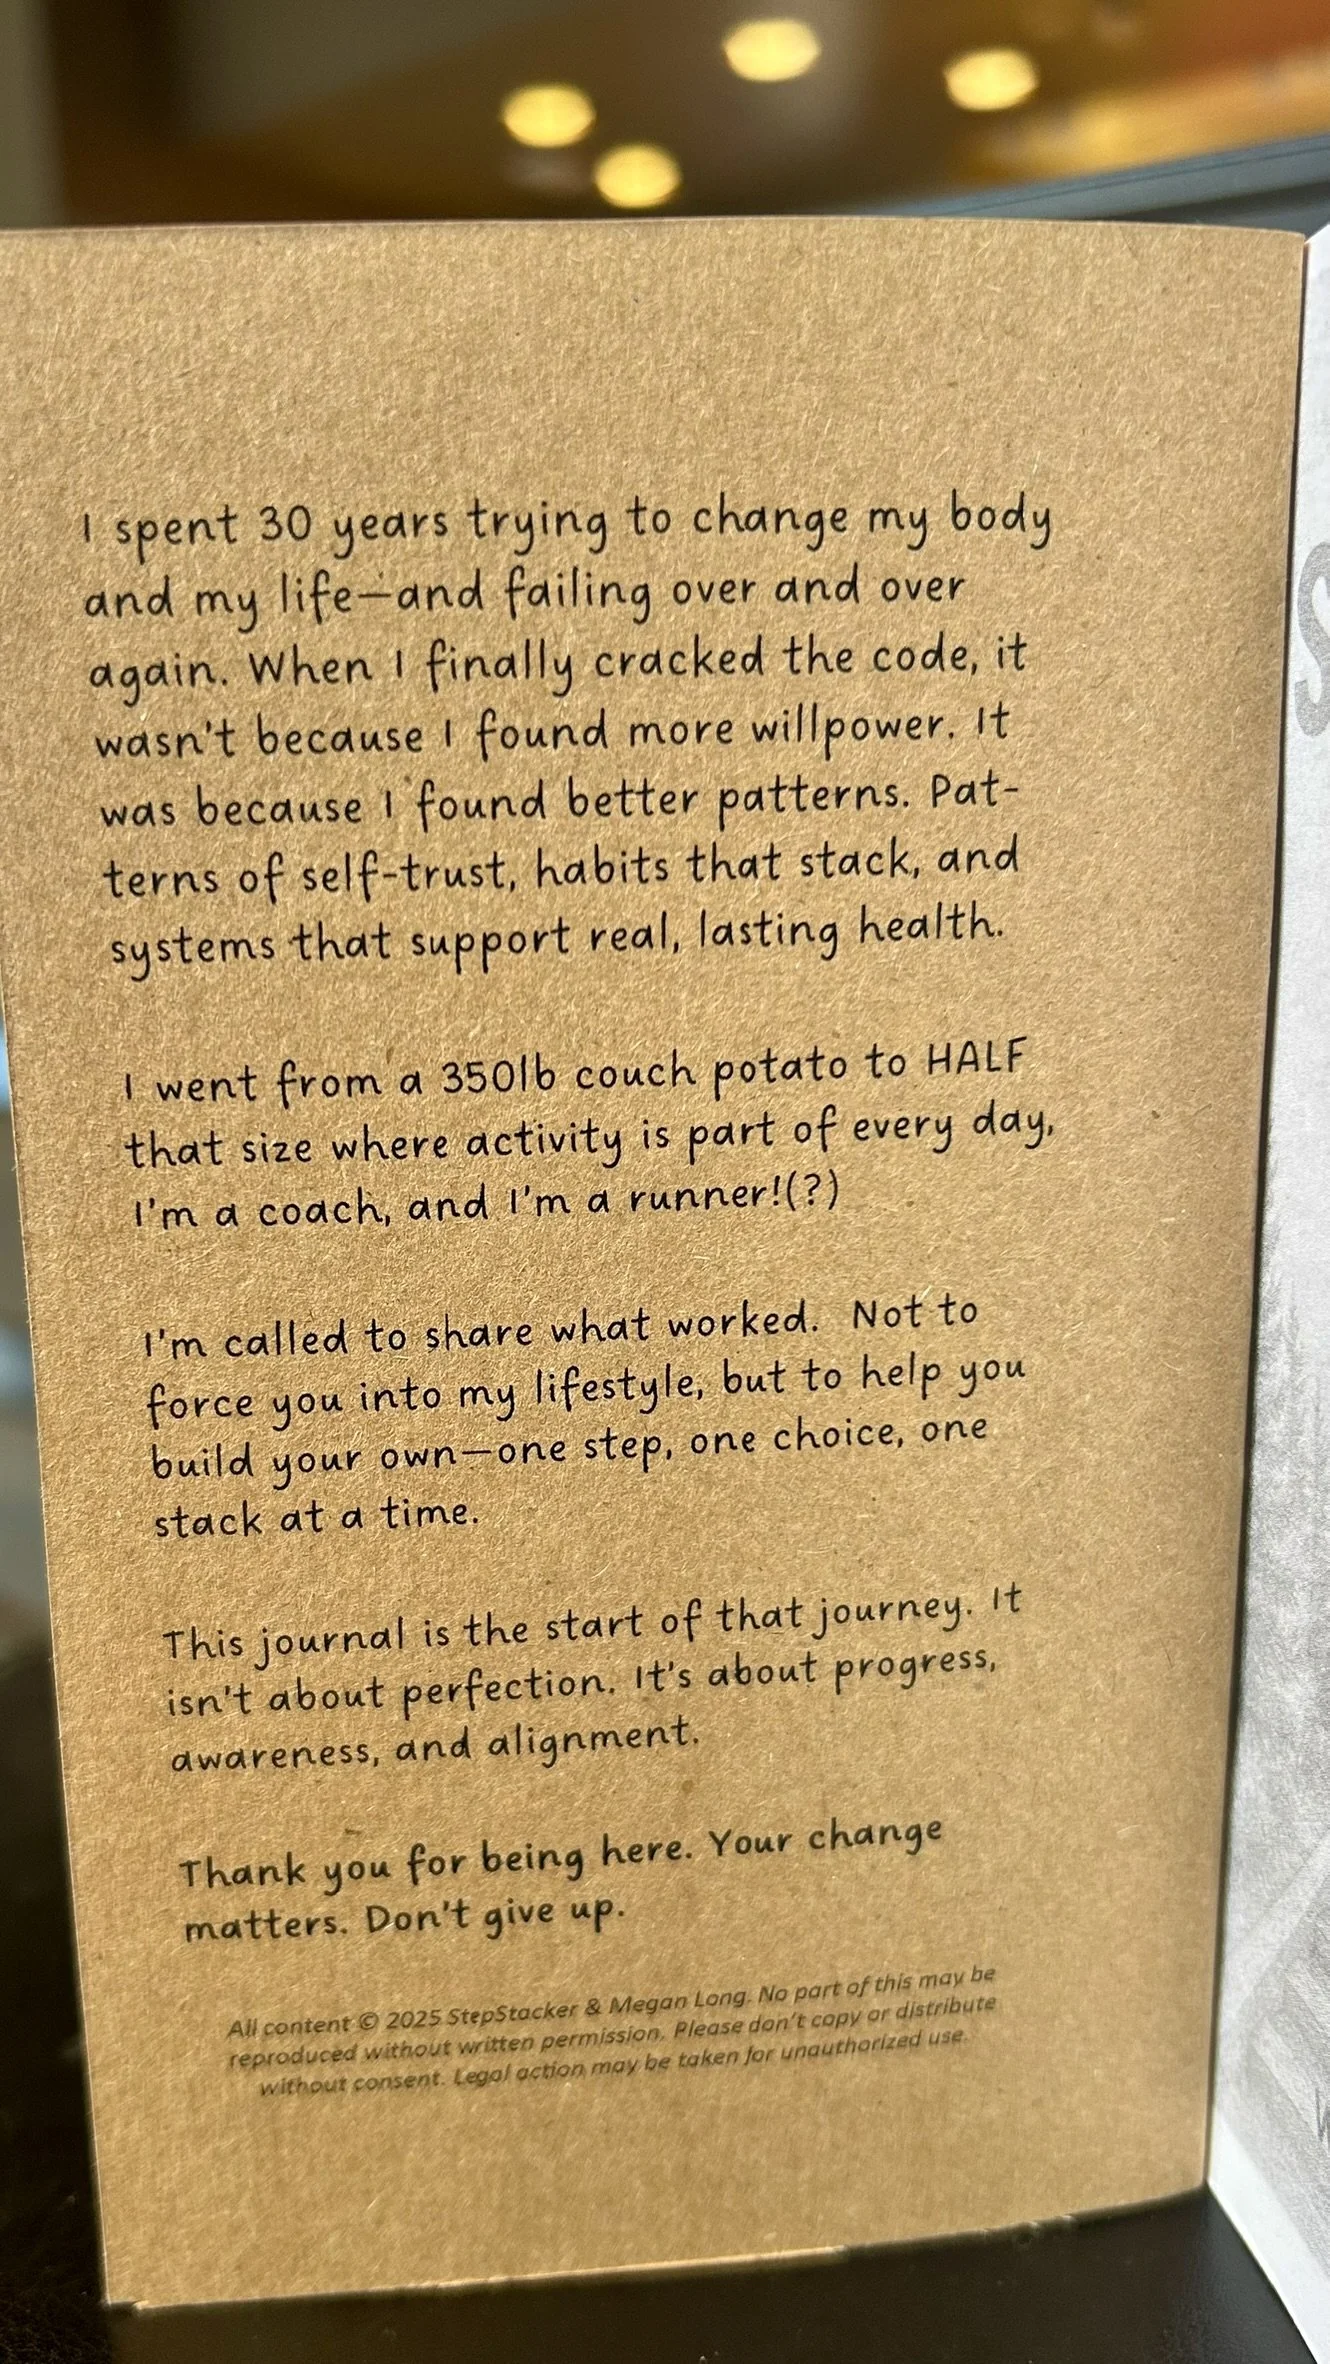 I spent 30 years trying to change my body
and my life—and failing over and over
again. When I finally cracked the code, it
wasn't because I found more willpower. It
was because I found better patterns. Pat-
terns of self-trust, habits that stack, and
systems that support real, lasting health.
I went from a 350lb couch potato to HALF
that size where activity is part of every day,
I'm a coach, and I'm a runner!(?)
I'm called to share what worked. Not to
force you into my lifestyle, but to help you
build your own—one step, one choice, one
stack at a time.
This journal is the start of that journey. It
isn't about perfection. It's about progress,
awareness, and alignment.
Thank you for being here. Your change
matters. Don't give up.
All content © 2025 StepStacker & Megan Long. No part of this may be
reproduced without written permission. Please don't copy or distribute
without consent. Legal action may be taken for unauthorized use.